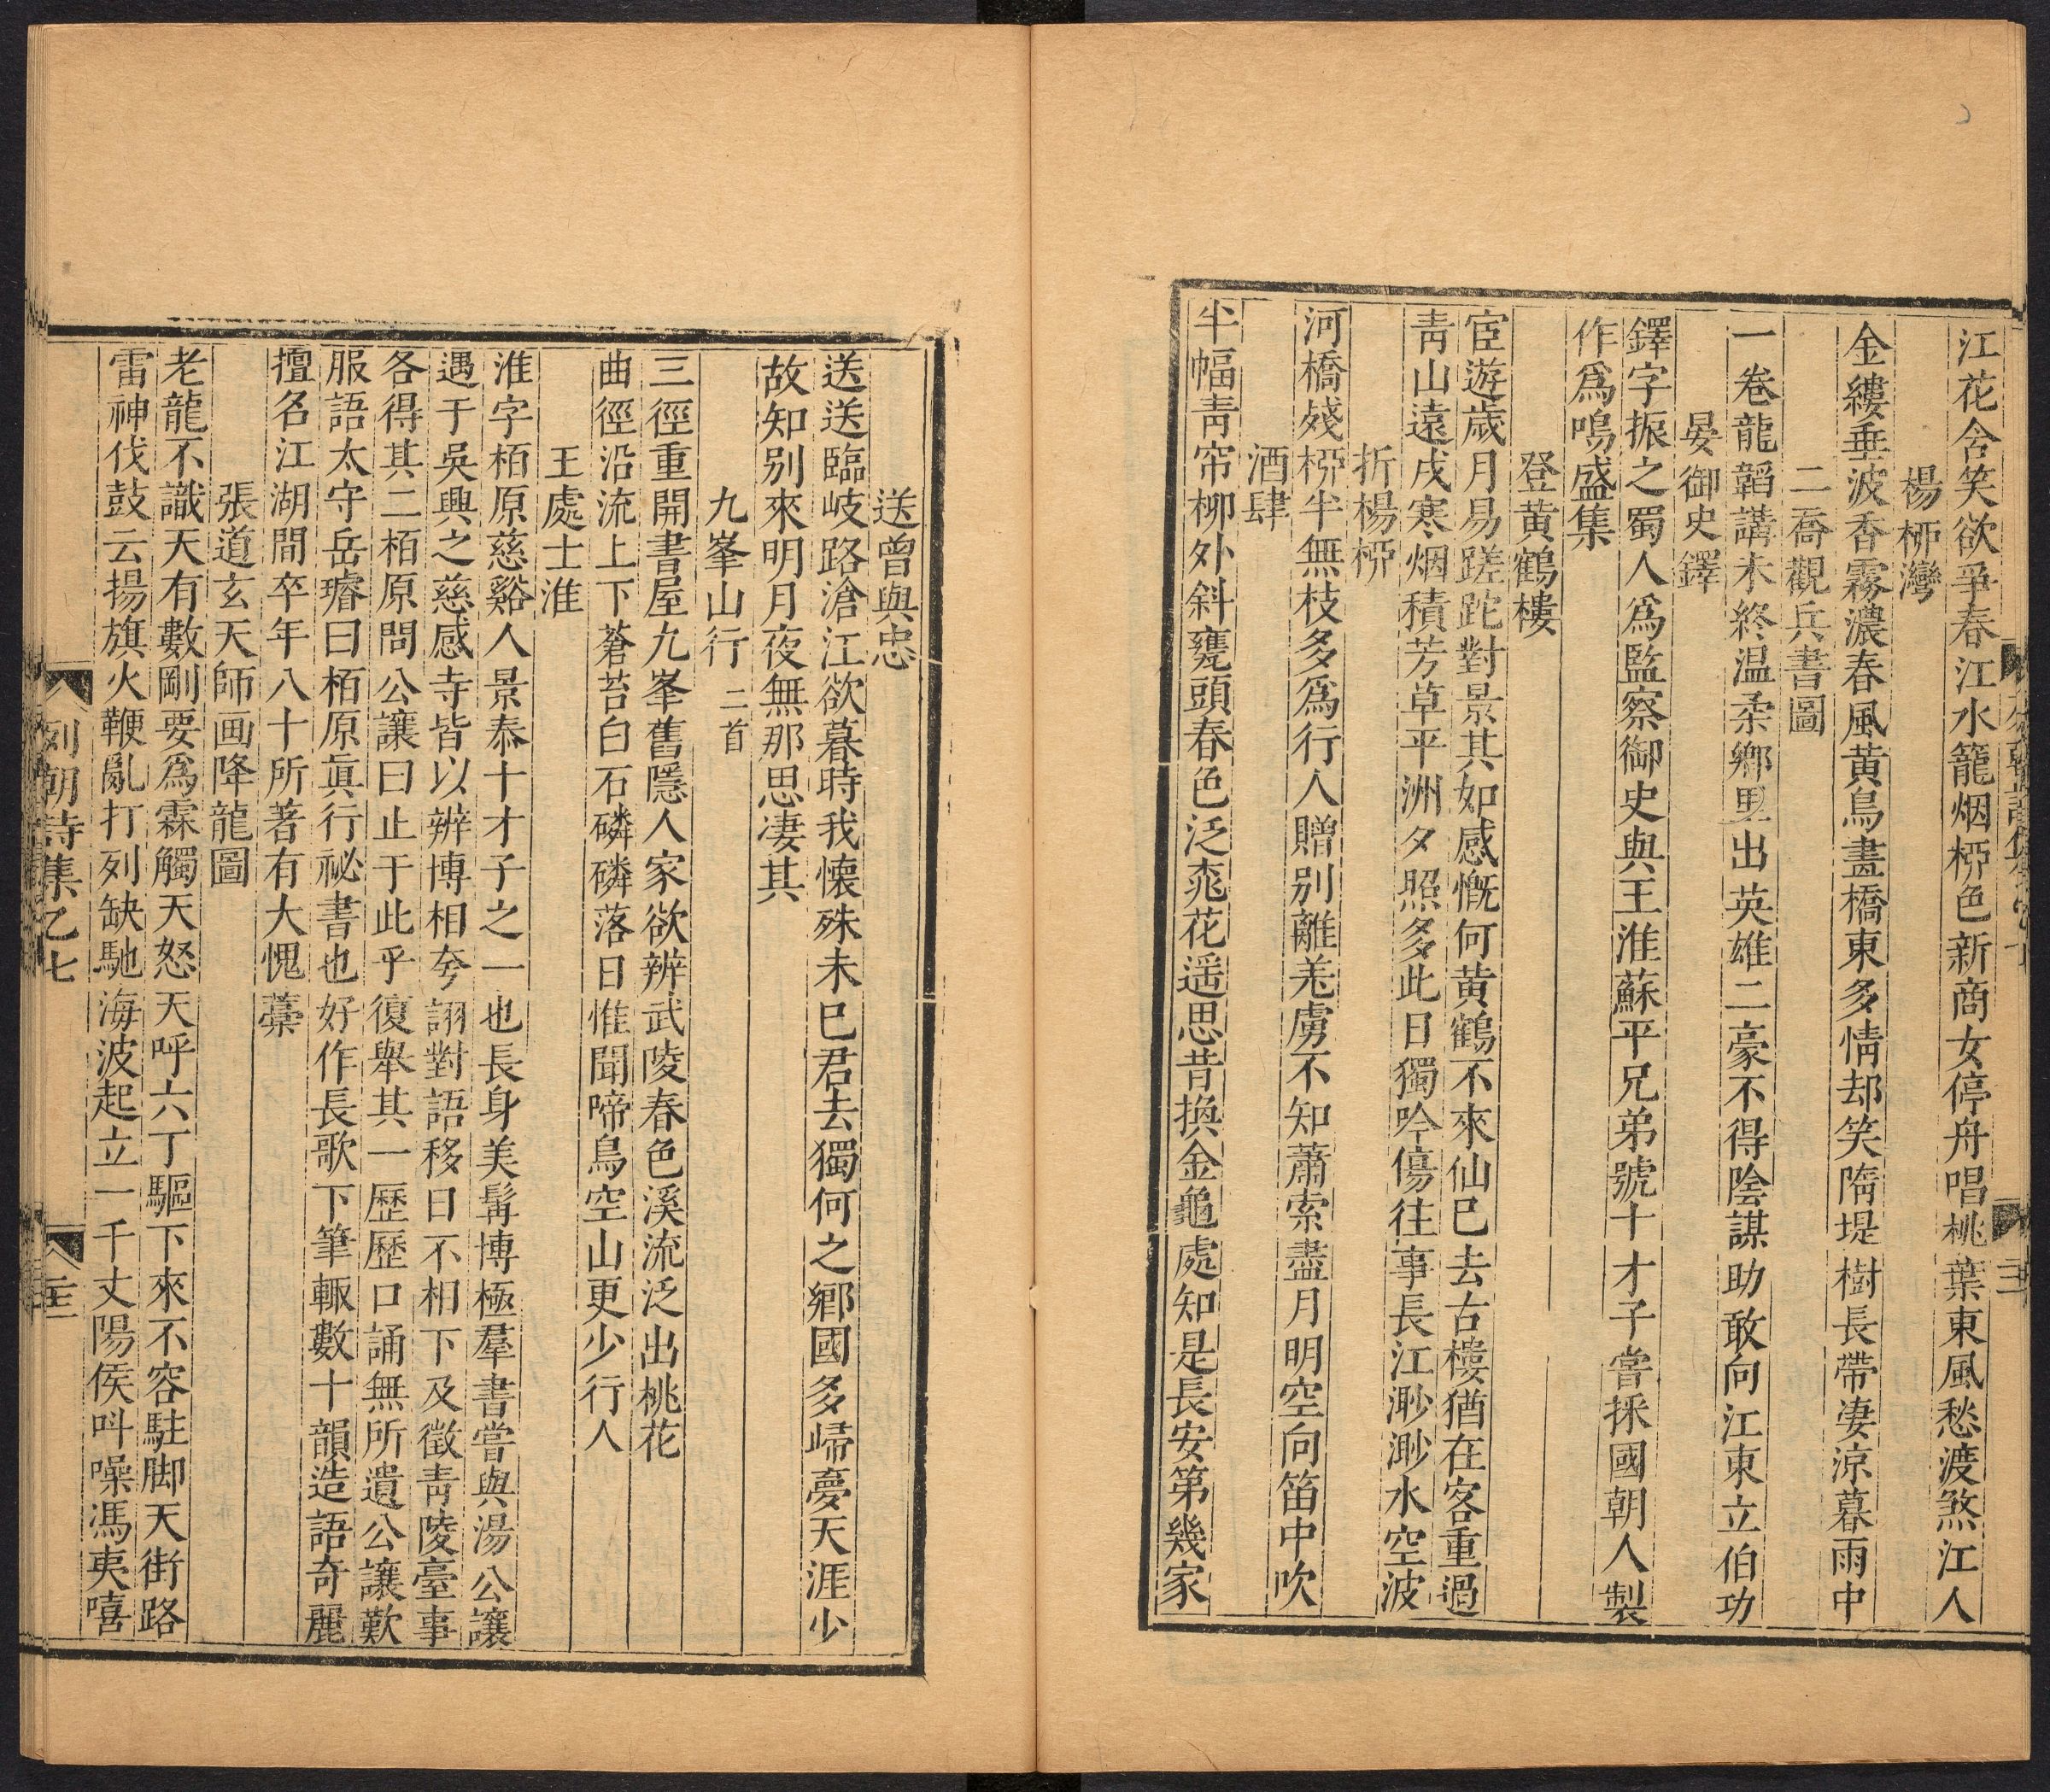 江花含笑欲爭春江水籠烟桺色新商女停舟唱桃葉東風愁渡煞江人
楊桺灣
金縷垂波香霧濃春風黃鳥畫橋東多情却笑隋堤樹長帶凄涼暮雨中
二喬觀兵書圖
一卷龍韜講未終温柔鄉里出英雄二豪不得陰謀助敢向江東立伯功
晏御史鐸
鐸字振之蜀人爲監察御史與王淮蘇平兄弟號十才子嘗採國朝人製
作爲鳴盛集
登黃鶴樓
宦遊歲月易蹉跎對景其如感慨何黃鶴不來仙巳去古樓猶在客重過
靑山遠戍寒烟積芳草平洲夕照多此日獨吟傷往事長江渺渺水空波
折楊桺
河橋殘桺半無枝多爲行人贈别離羌虜不知蕭索盡月明空向笛中吹
酒肆
半幅靑帘柳外斜甕頭春色泛桃花遥思昔換金龜處知是長安第幾家
送曾與忠
送送臨岐路滄江欲暮時我懐殊未巳君去獨何之鄉國多歸夢天涯少
故知别來明月夜無那思凄其
九峯山行 二首
三徑重開書屋九峯舊隱人家欲辨武陵春色溪流泛出桃花
曲徑沿流上下蒼苔白石磷磷落日惟聞啼鳥空山更少行人
王處士淮
淮字栢原慈谿人景泰十才子之一也長身美髯博極羣書嘗與湯公讓
遇于吳興之慈感寺皆以辨博相夸詡對語移日不相下及徵青陵臺事
各得其二栢原問公讓曰止于此乎復舉其一歷歷口誦無所遺公讓歎
服語太守岳璿曰栢原眞行祕書也好作長歌下筆輒數十韻造語奇麗
擅名江湖間卒年八十所著有大愧藁
張道玄天師画降龍圖
老龍不識天有數剛要爲霖觸天怒天呼六丁驅下來不容駐脚天街路
雷神伐鼓云揚旗火鞭亂打列缺馳海波起立一千丈陽侯呌噪馮夷嘻
列朝詩集乙七